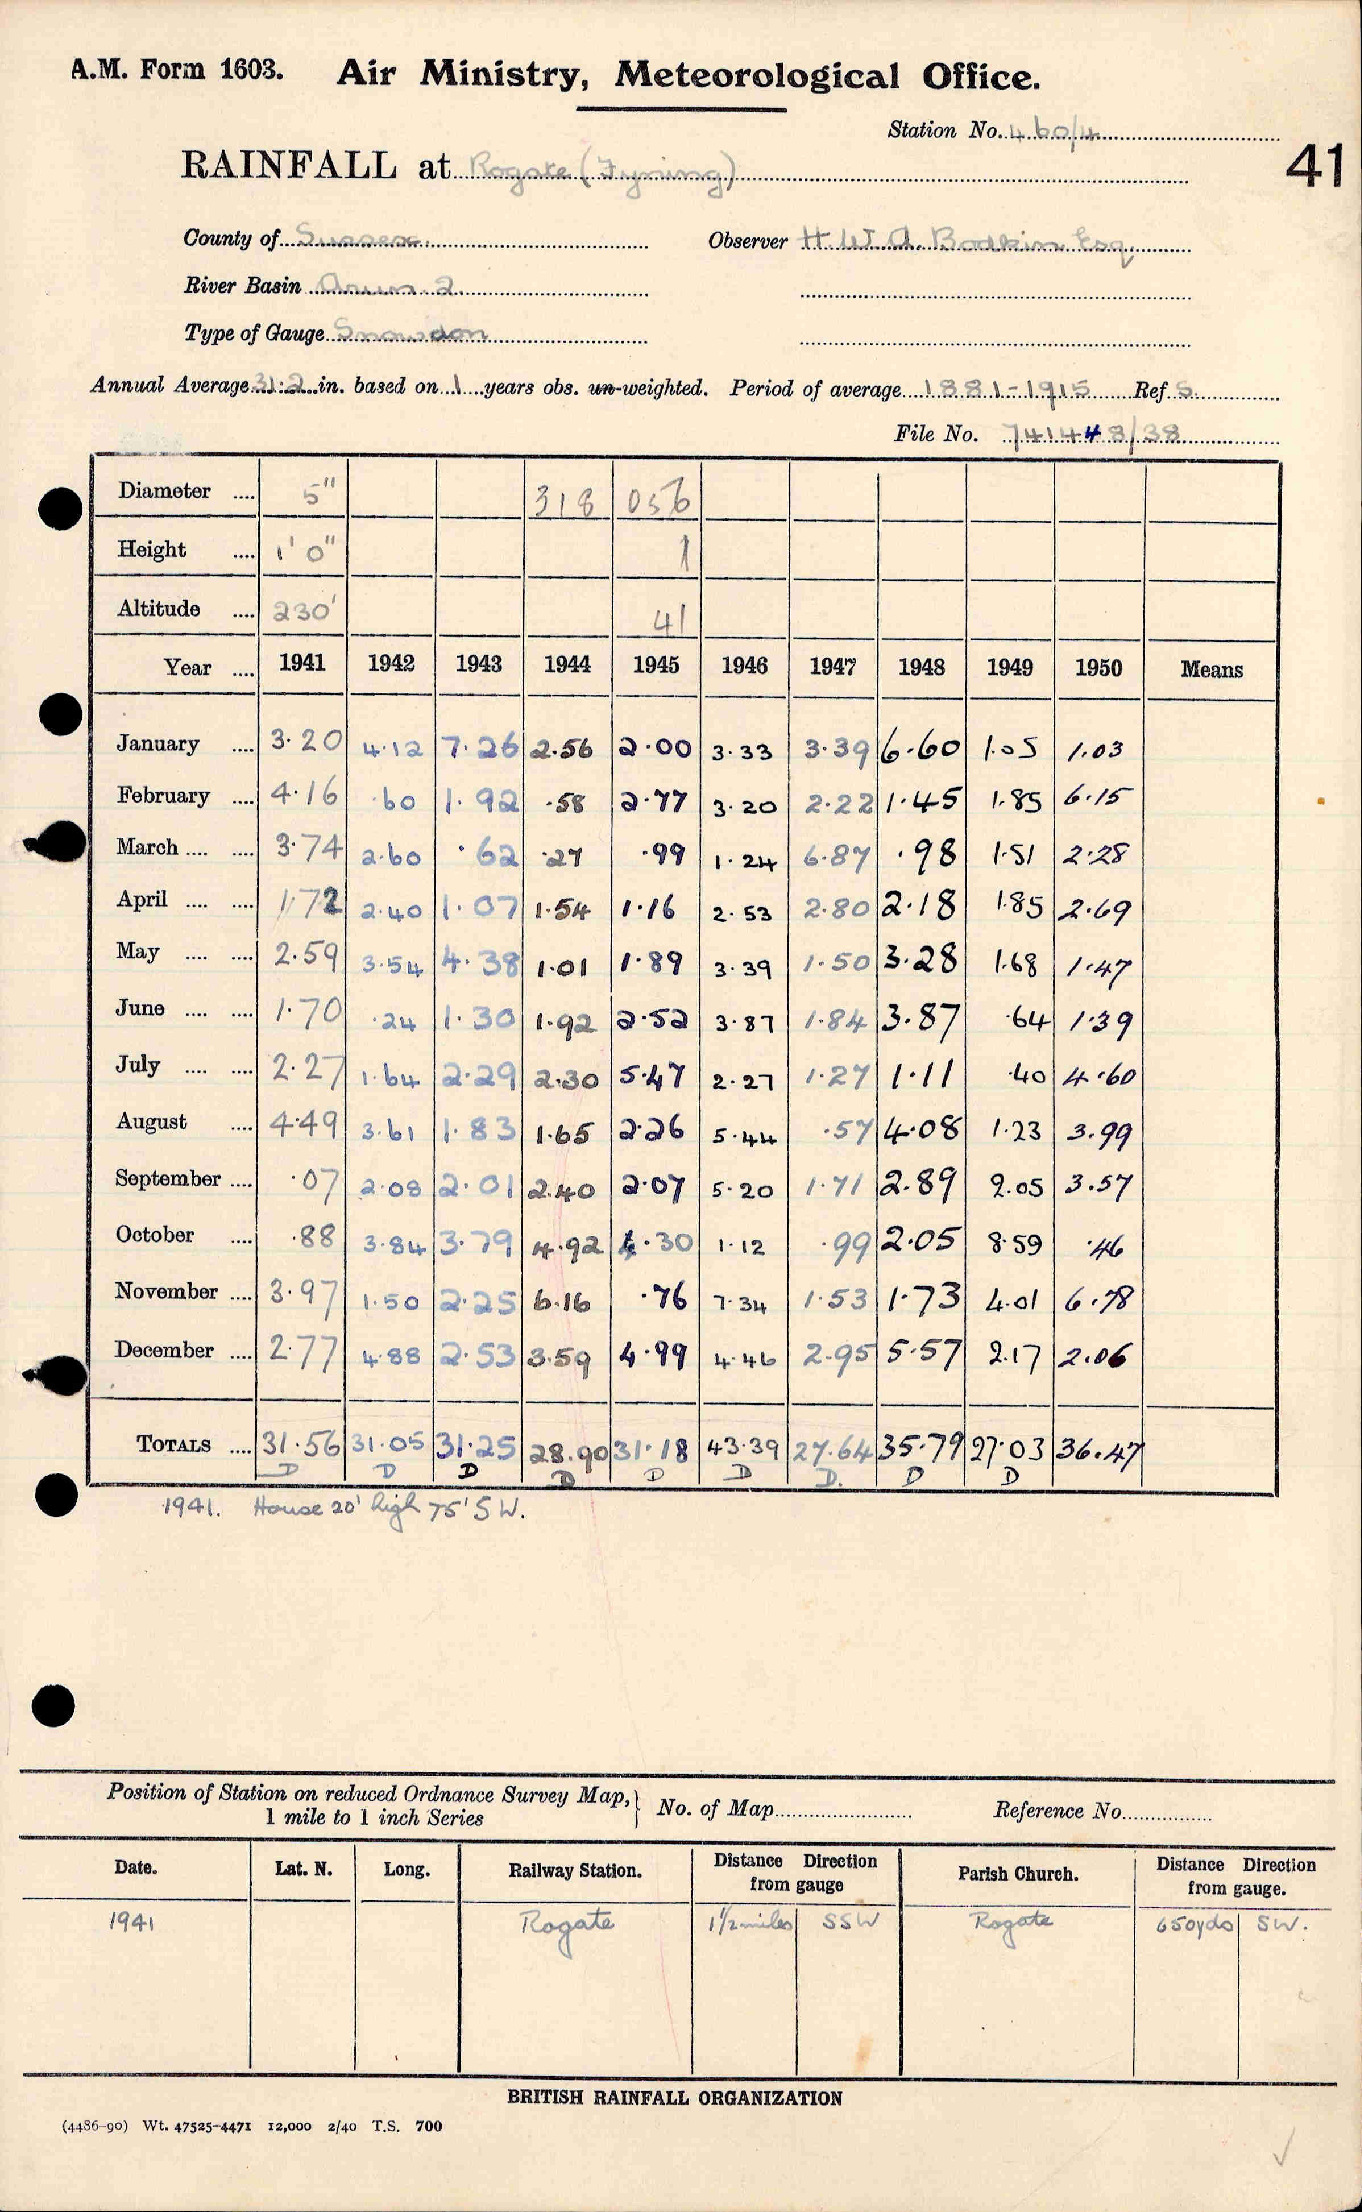 A.M. Form 1603. Air Ministry, Meteorological Office.
Station No. 460/4
41
RAINFALL at Rogate (Fyning)
County of Sussex. Observer H. W. A. Bodkin Esq
River Basin Arun 2
Type of Gauge Snowdon
Annual Average 31.2 in. based on 1 years obs. un-weighted. Period of average 1881-1915 Ref S.
File No. 741448/38
Diameter .... 5" 318 056
Height .... 1' 0" 1
Altitude .... 230' 41
Year .... 1941 1942 1943 1944 1945 1946 1947 1948 1949 1950 Means
January .... 3.20 4.12 7.26 2.56 2.00 3.33 3.39 6.60 1.05 1.03
February .... 4.16 .60 1.92 .58 2.77 3.20 2.22 1.45 1.85 6.15
March .... .... 3.74 2.60 .62 .27 .99 1.24 6.87 .98 1.51 2.28
April .... .... 1.72 2.40 1.07 1.54 1.16 2.53 2.80 2.18 1.85 2.69
May .... .... 2.59 3.54 4.38 1.01 1.89 3.39 1.50 3.28 1.68 1.47
June .... .... 1.70 .24 1.30 1.92 2.52 3.87 1.84 3.87 .64 1.39
July .... .... 2.27 1.64 2.29 2.30 5.47 2.27 1.27 1.11 .40 4.60
August .... 4.49 3.61 1.83 1.65 2.26 5.44 .57 4.08 1.23 3.99
September .... .07 2.08 2.01 2.40 2.07 5.20 1.71 2.89 2.05 3.57
October .... .88 3.84 3.79 4.92 4.30 1.12 .99 2.05 8.59 .46
November .... 3.97 1.50 2.25 6.16 .76 7.34 1.53 1.73 4.01 6.78
December .... 2.77 4.88 2.53 3.59 4.99 4.46 2.95 5.57 2.17 2.06
TOTALS .... 31.56 31.05 31.25 28.90 31.18 43.39 27.64 35.79 27.03 36.47
D D D D D D D. D D
1941. House 20' high 75' SW.
Position of Station on reduced Ordnance Survey Map, } No. of Map Reference No.
1 mile to 1 inch Series
Date. Lat. N. Long. Railway Station. Distance Direction from gauge Parish Church. Distance Direction from gauge.
1941 Rogate 1 1/2 miles SSW Rogate 650yds SW.
BRITISH RAINFALL ORGANIZATION
(4486-90) Wt. 47525-4471 12,000 2/40 T.S. 700